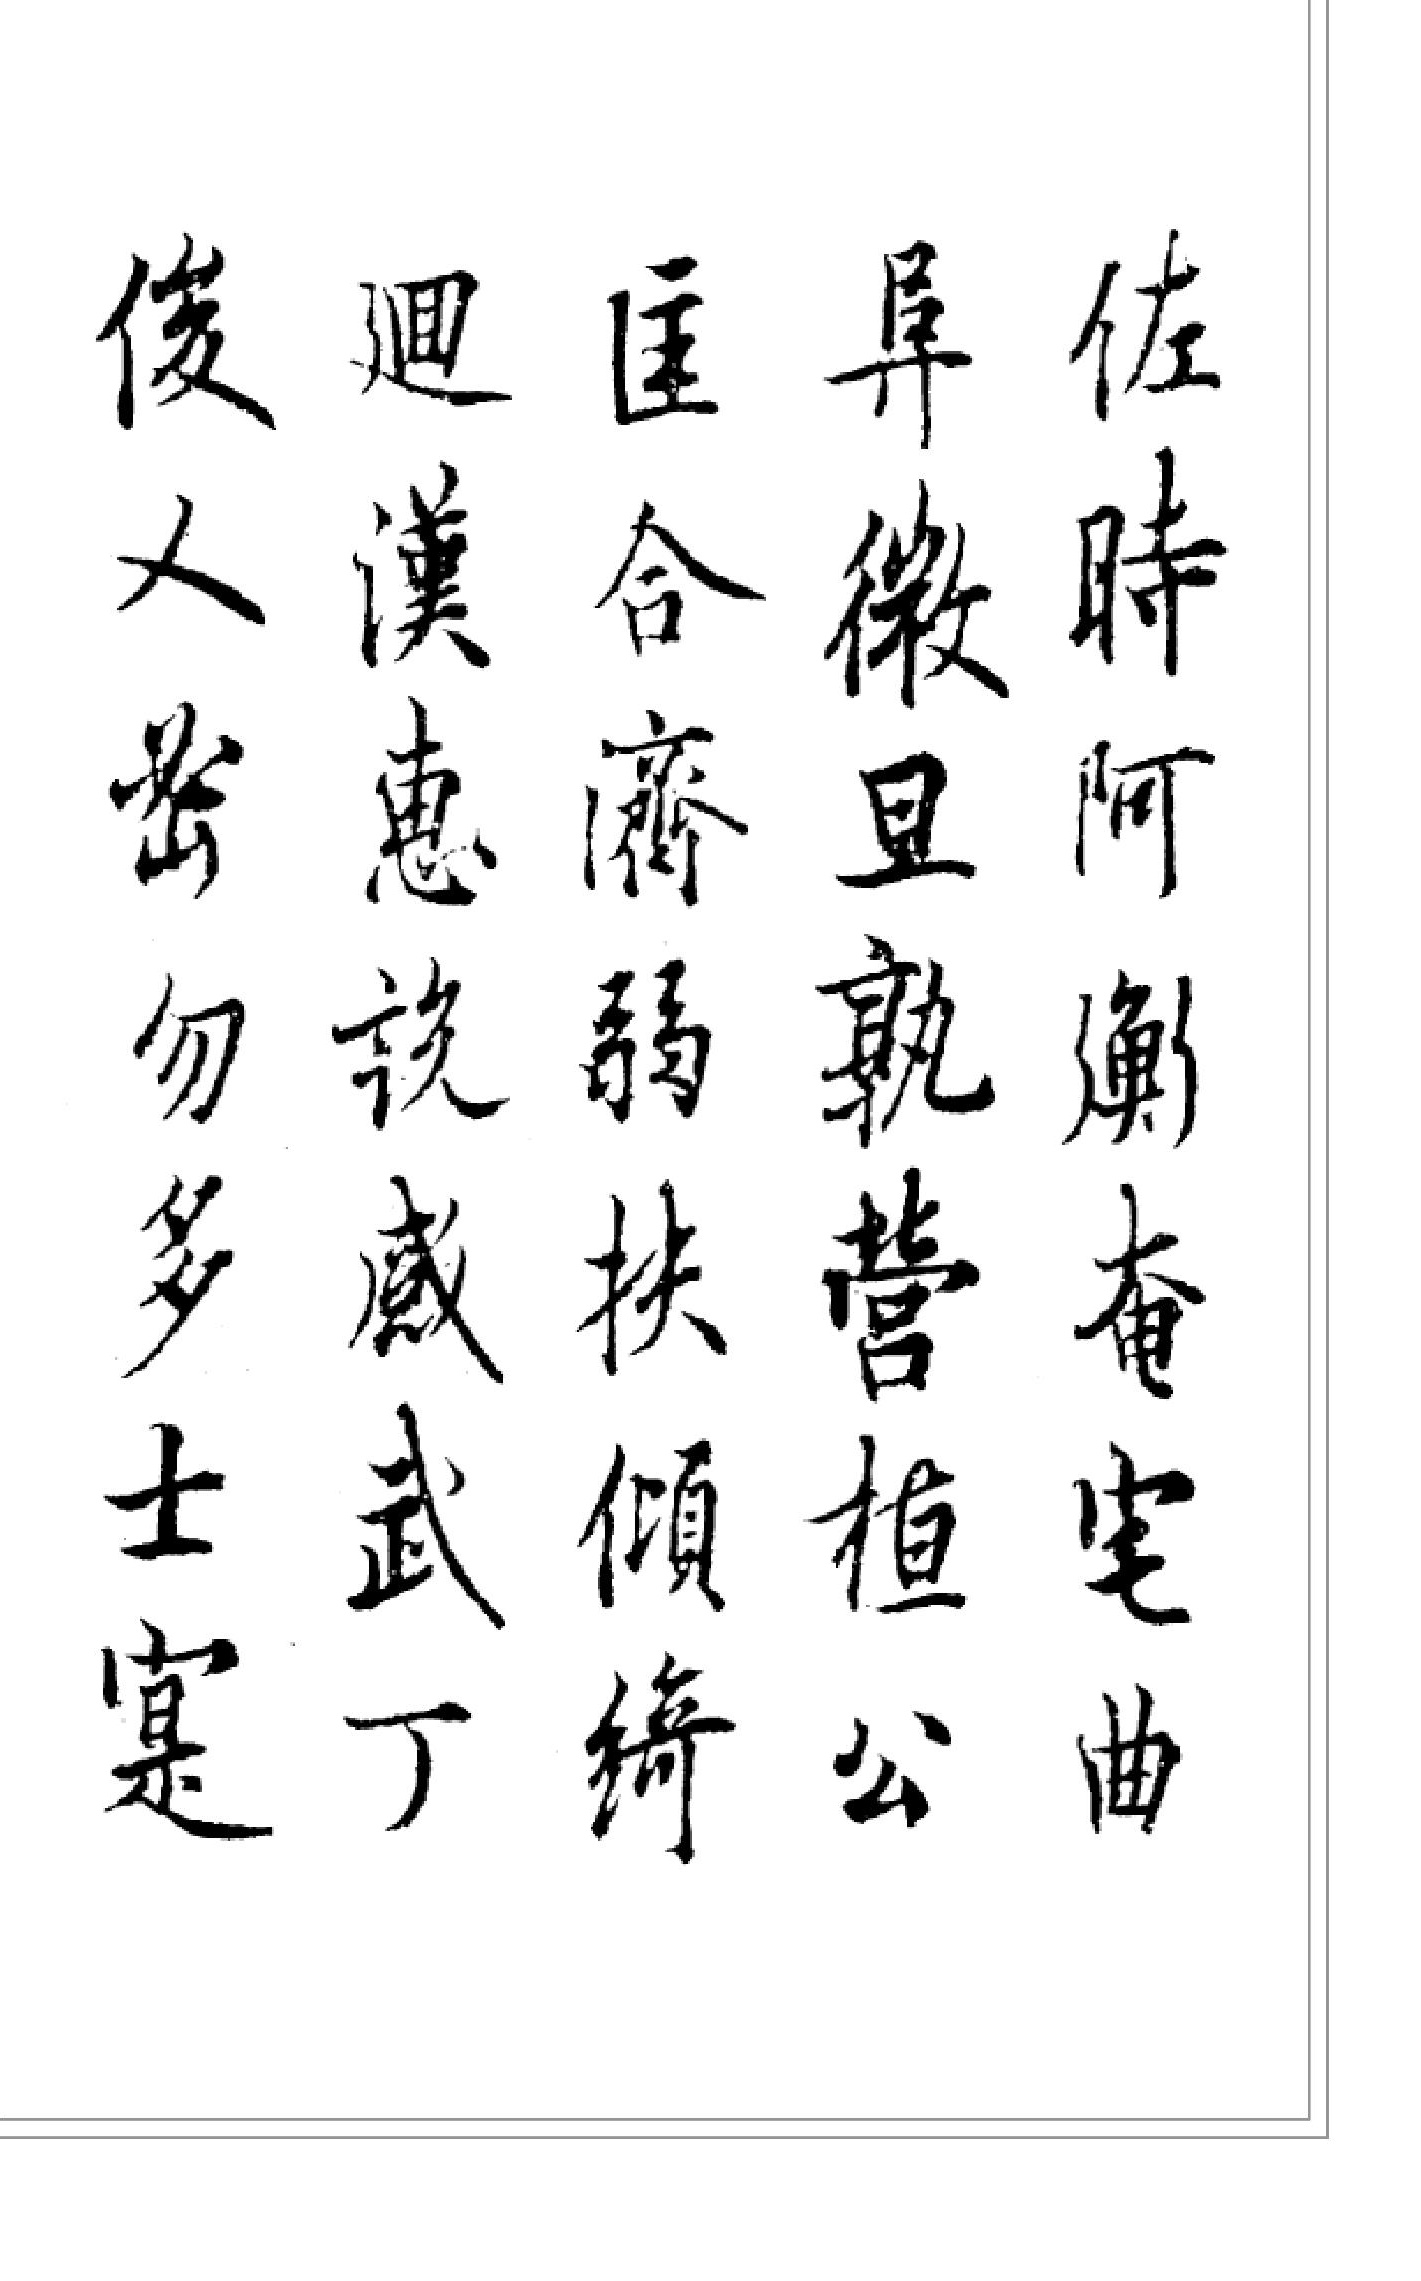 佐時阿衡奄宅曲
阜微旦孰營桓公
匡合濟弱扶傾綺
迴漢惠說感武丁
俊乂密勿多士寔